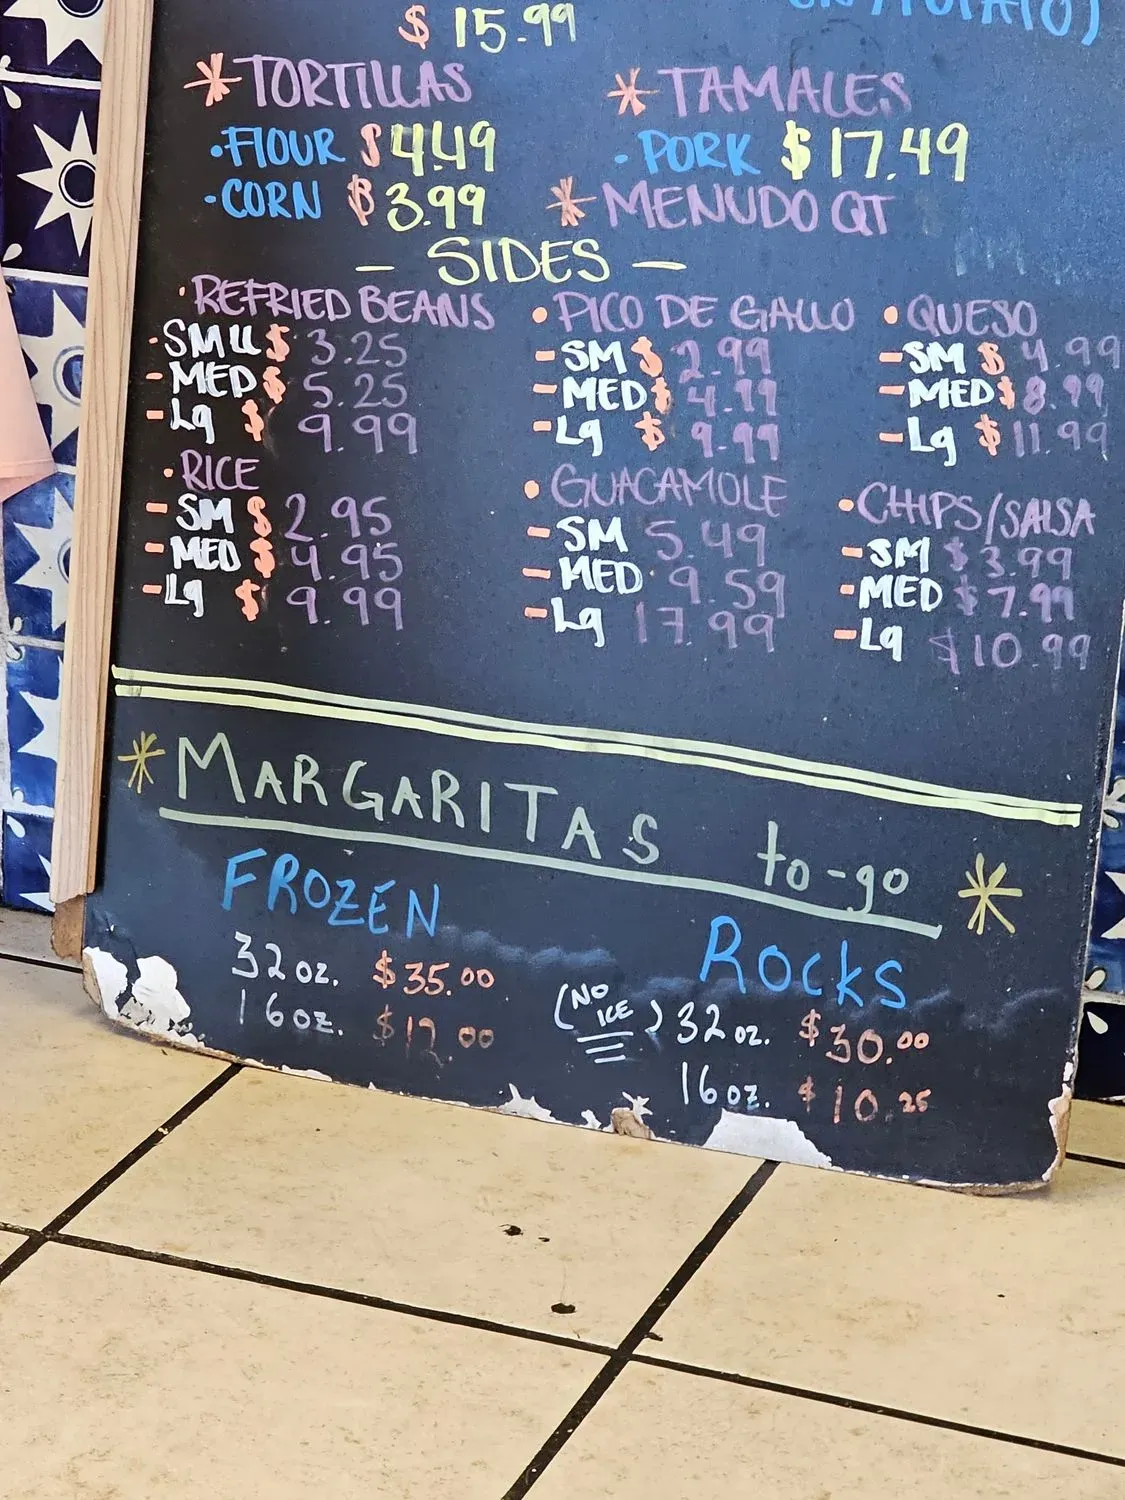 $ 15.99
*TORTILLAS
·FLOUR $4.49
·CORN $3.99
*TAMALES
·PORK $17.49
*MENUDO QT
— SIDES —
·REFRIED BEANS
-SMLL $ 3.25
-MED $ 5.25
-Lg $ 9.99
·RICE
-SM $ 2.95
-MED $ 4.95
-Lg $ 9.99
·PICO DE GALLO
-SM $ 2.99
-MED $ 4.99
-Lg $ 9.99
·GUACAMOLE
-SM 5.49
-MED 9.59
-Lg 17.99
·QUESO
-SM $ 4.99
-MED $ 8.99
-Lg $ 11.99
·CHIPS/SALSA
-SM $3.99
-MED $7.99
-Lg $10.99
*MARGARITAS to-go *
FROZEN
32 oz. $35.00
16 oz. $12.00
ROCKS
(NO ICE) 32 oz. $30.00
16 oz. $10.25